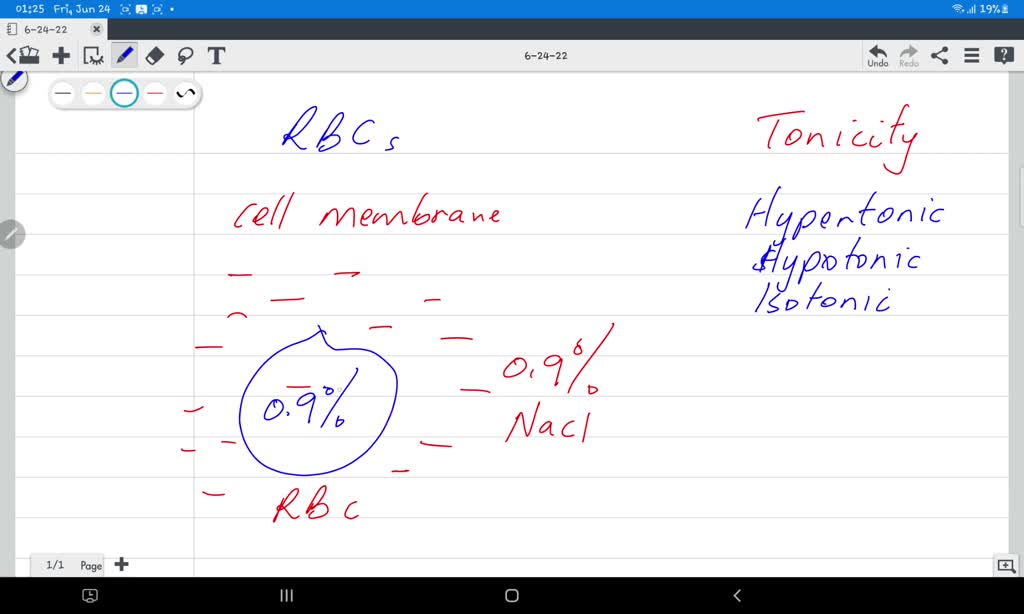 01:25 Fri, Jun 24
19%
6-24-22
T
6-24-22
Undo
Redo
RBCs
Tonicity
cell membrane
Hypertonic
Hypotonic
Isotonic
0.9%
0.9%
NaCl
RBC
1/1 Page